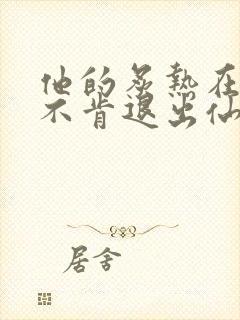 他的炙热在
不肯退出仙
居舍